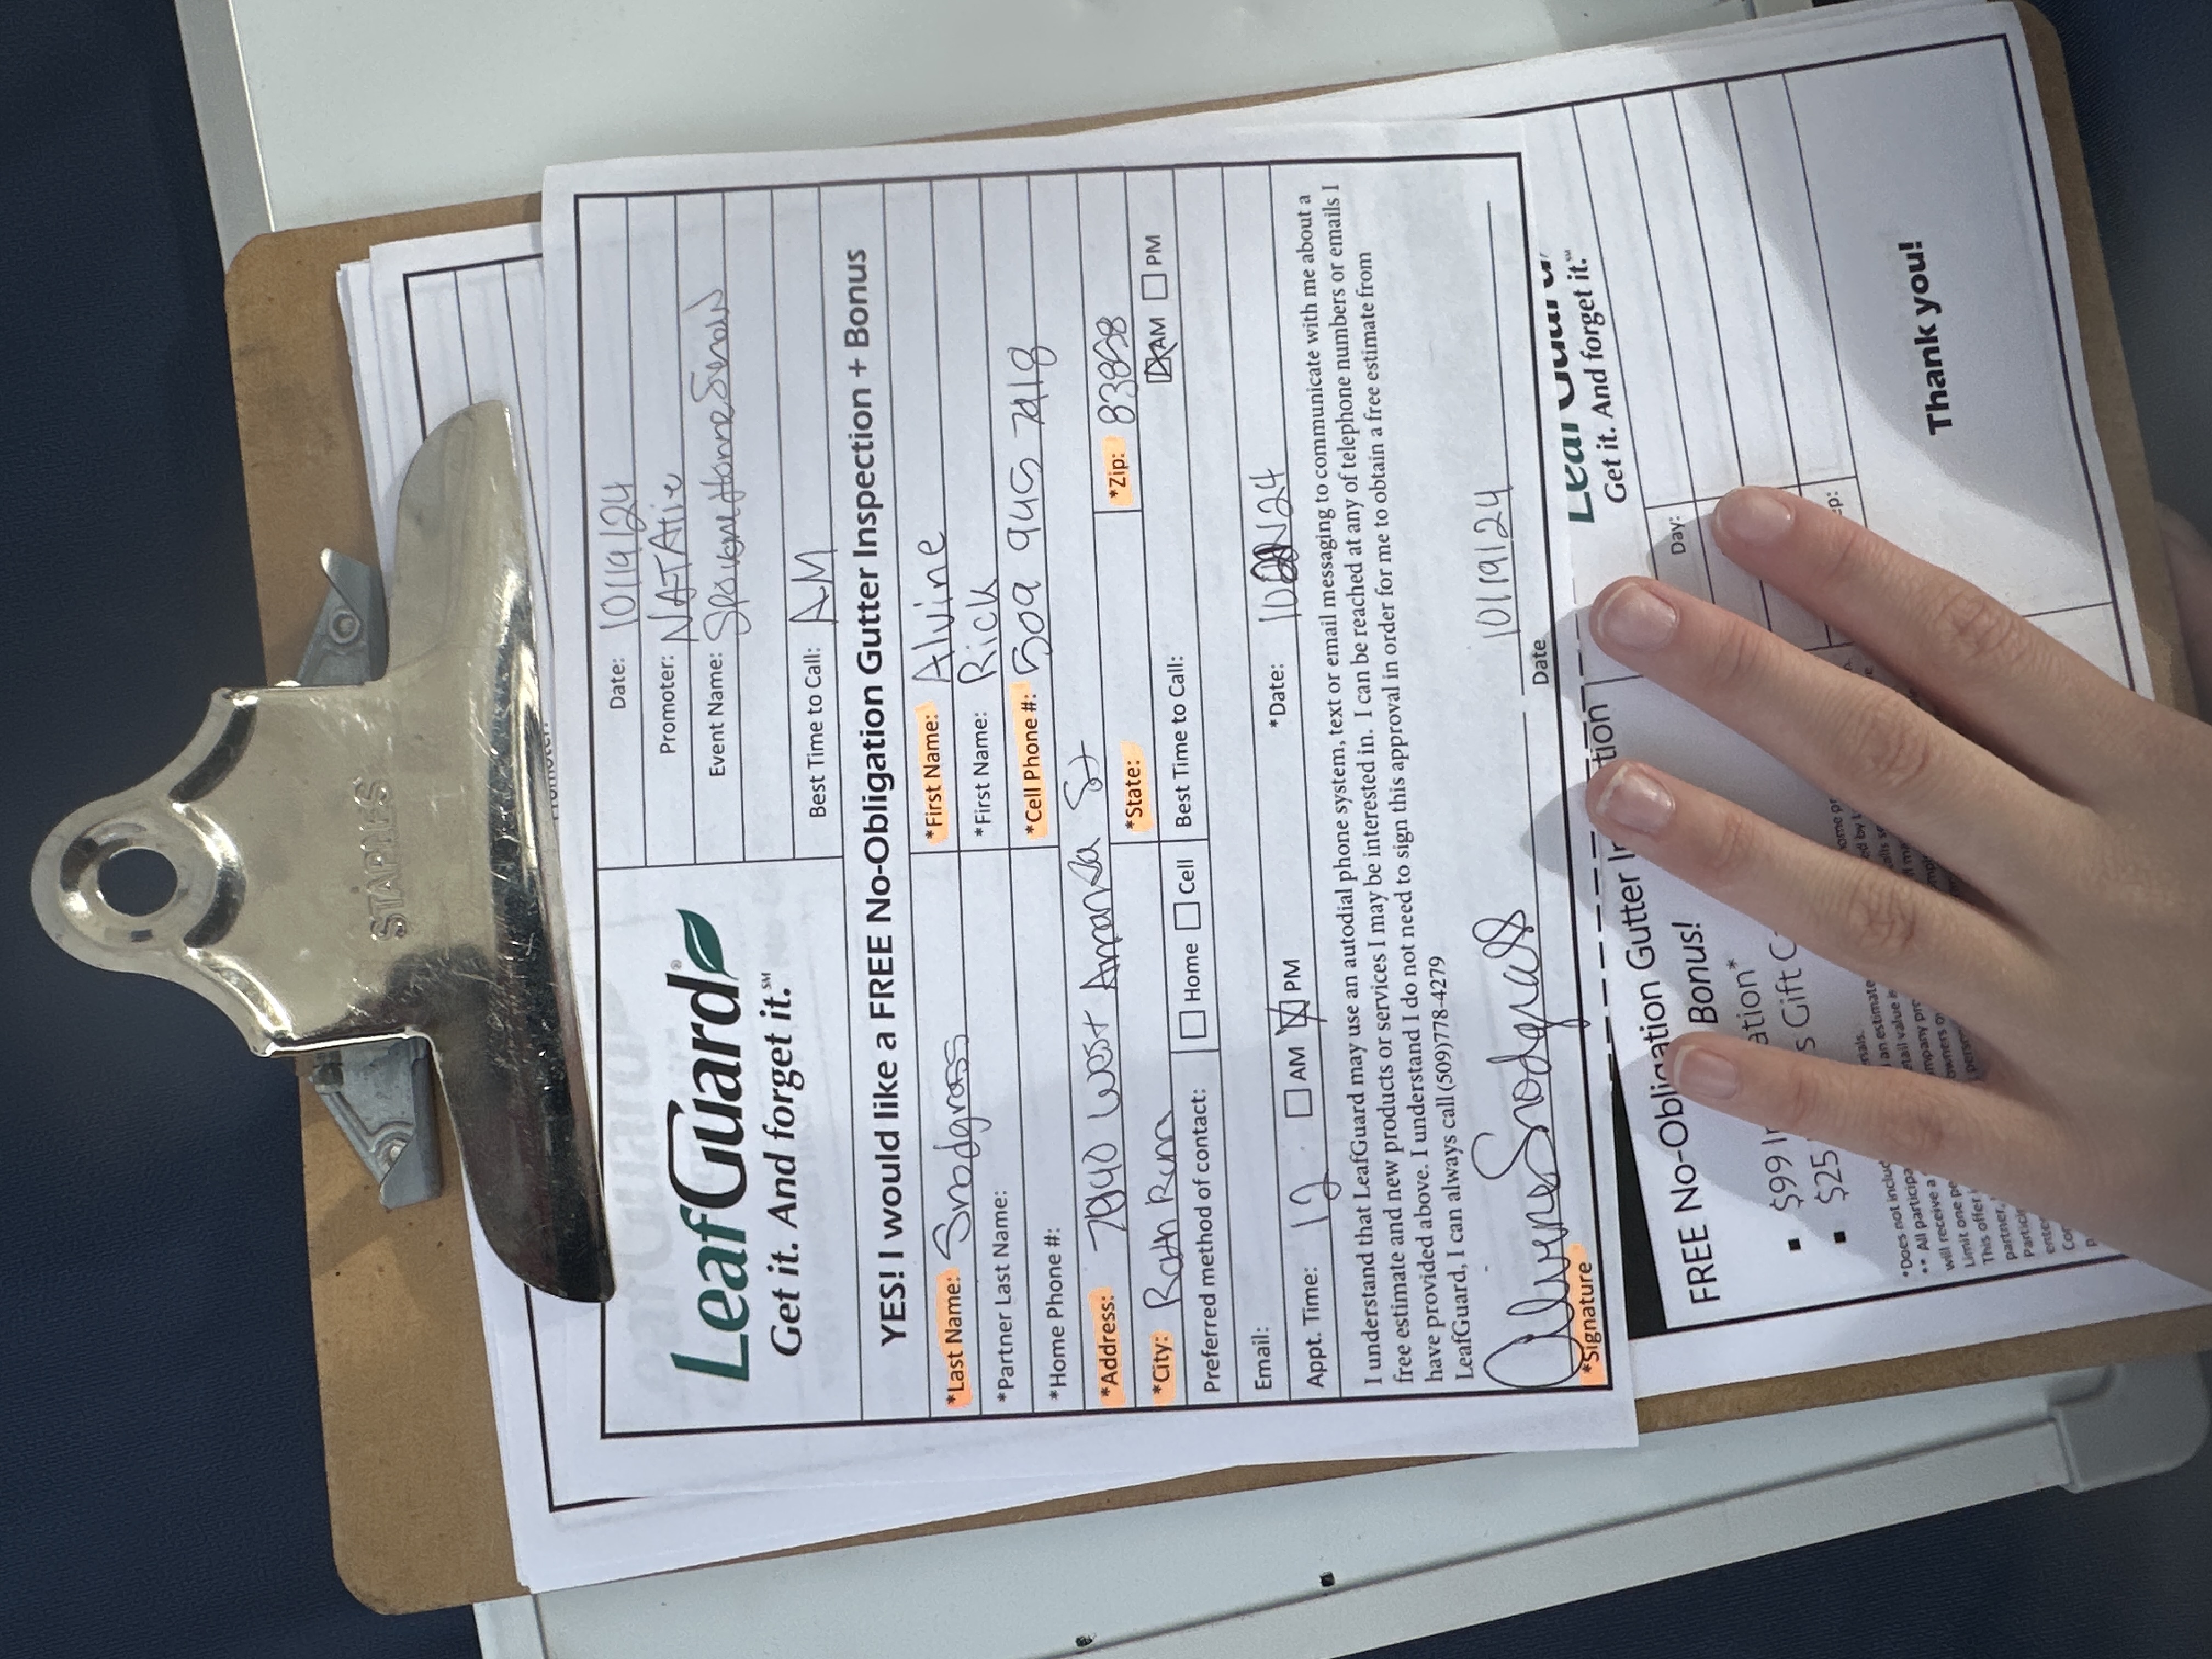 STAPLES
Promoter:
LeafGuard®
Get it. And forget it.℠
Date: 10/19/24
Promoter: NATAlie
Event Name: Spokane Home Show
Best Time to Call: AM
YES! I would like a FREE No-Obligation Gutter Inspection + Bonus
*Last Name: Snodgrass *First Name: Alvine
*Partner Last Name: *First Name: Rick
*Home Phone #: *Cell Phone #: 509 945 7418
*Address: West Amanda St
*City: Rath Rum *State: *Zip: 83858
Preferred method of contact: Home Cell Best Time to Call: AM PM
Email:
Appt. Time: 12 AM PM *Date: 24
I understand that LeafGuard may use an autodial phone system, text or email messaging to communicate with me about a
free estimate and new products or services I may be interested in. I can be reached at any of telephone numbers or emails I
have provided above. I understand I do not need to sign this approval in order for me to obtain a free estimate from
LeafGuard, I can always call (509)778-4279
Alvine Snodgrass 10/19/24
*Signature Date
FREE No-Obligation Gutter tion
Bonus!
▪ $99 ation*
▪ $25 s Gift
*Does not includ rials.
** All participa an estimate
will receive a etail value
Limit one pe mpany pro
This offer owners
partner, perso
LeafGuard
Get it. And forget it.℠
Day:
ep:
Thank you!